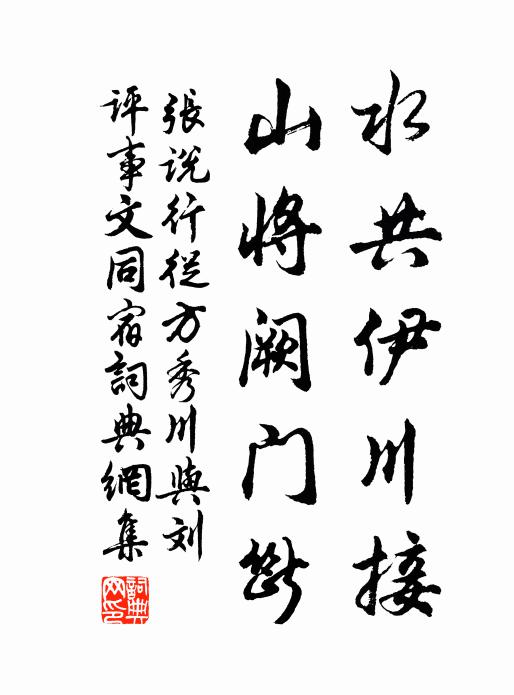 水共伊川接
山将阙门斷
張説行從方秀川與刘
評事文同宿詞典網集
詞典网印